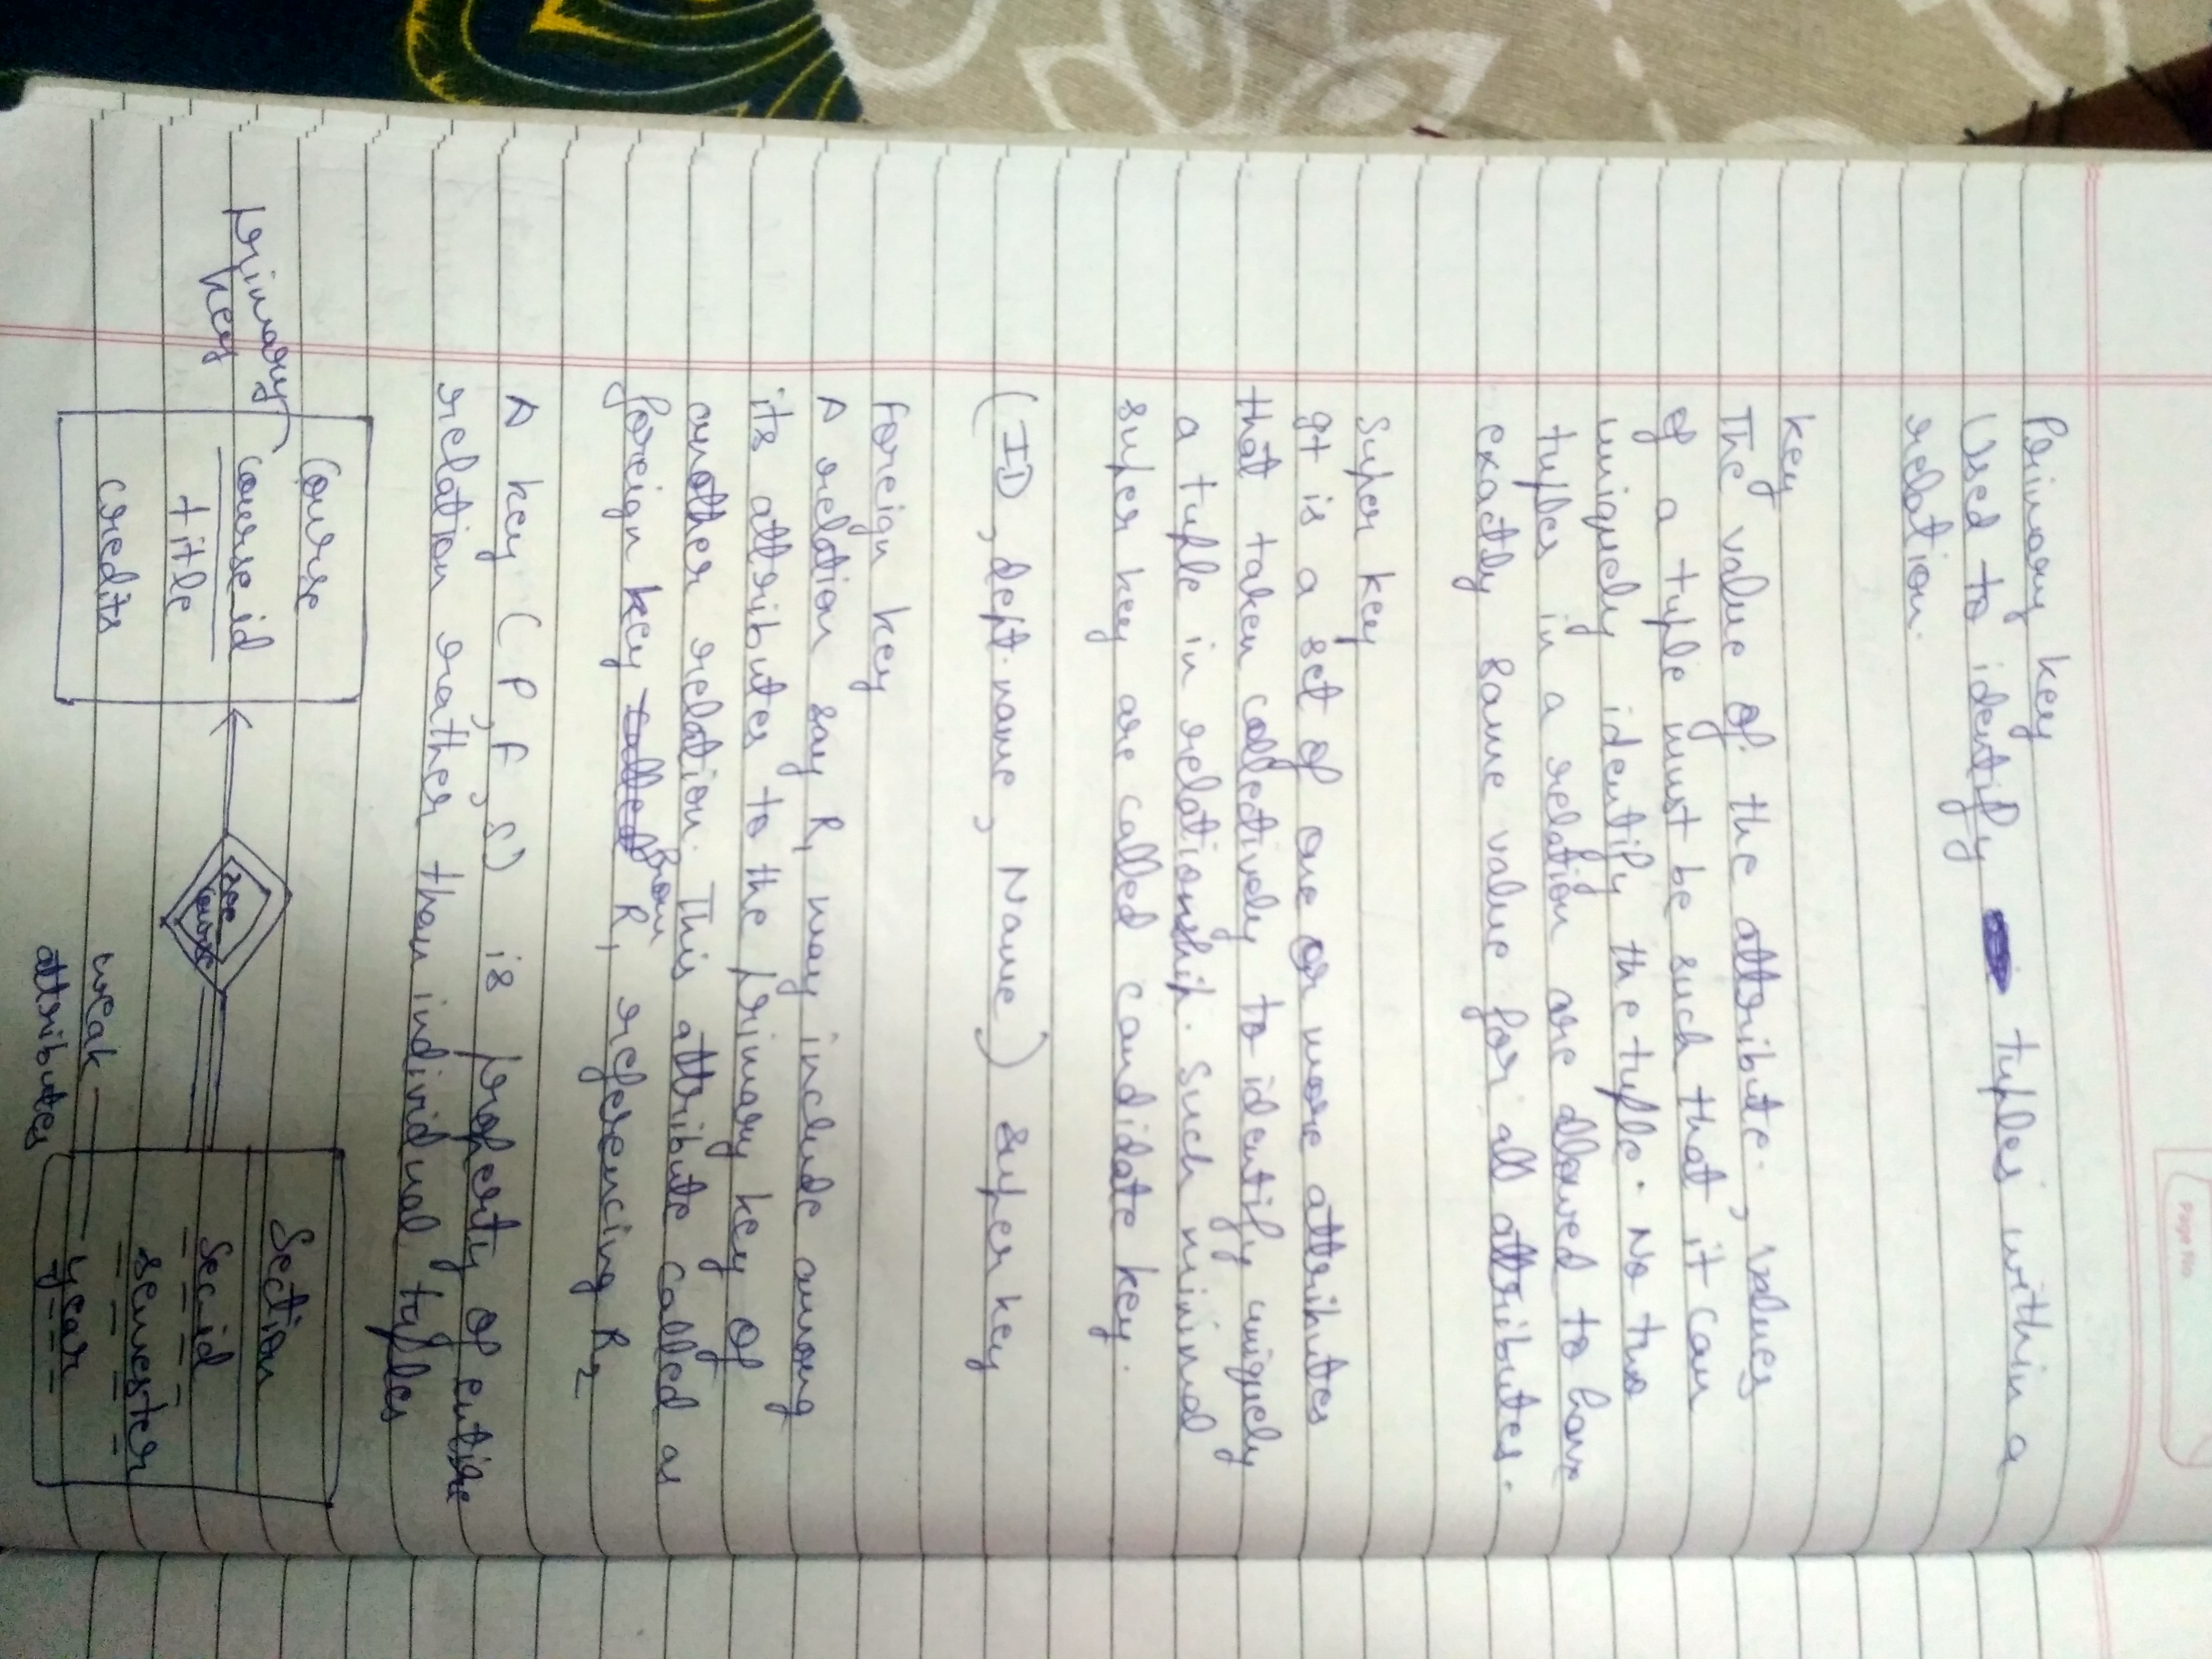 Page No.
Primary key
Used to identify tuples within a
relation.
Key
The value of the attribute, values
of a tuple must be such that it can
uniquely identify the tuple. No two
tuples in a relation are allowed to have
exactly same value for all attributes.
Super key
It is a set of one or more attributes
that taken collectively to identify uniquely
a tuple in relationship. Such minimal
super key are called candidate key.
(ID, dept.name, Name) super key
Foreign key
A relation say R1 may include among
its attributes to the primary key of
another relation. This attribute called as
foreign key from R1 referencing R2
A key (P, F, S) is property of entire
relation rather than individual tuples
primary
key
Course
course id
title
credits
sec
course
Section
sec id
semester
year
weak
attributes